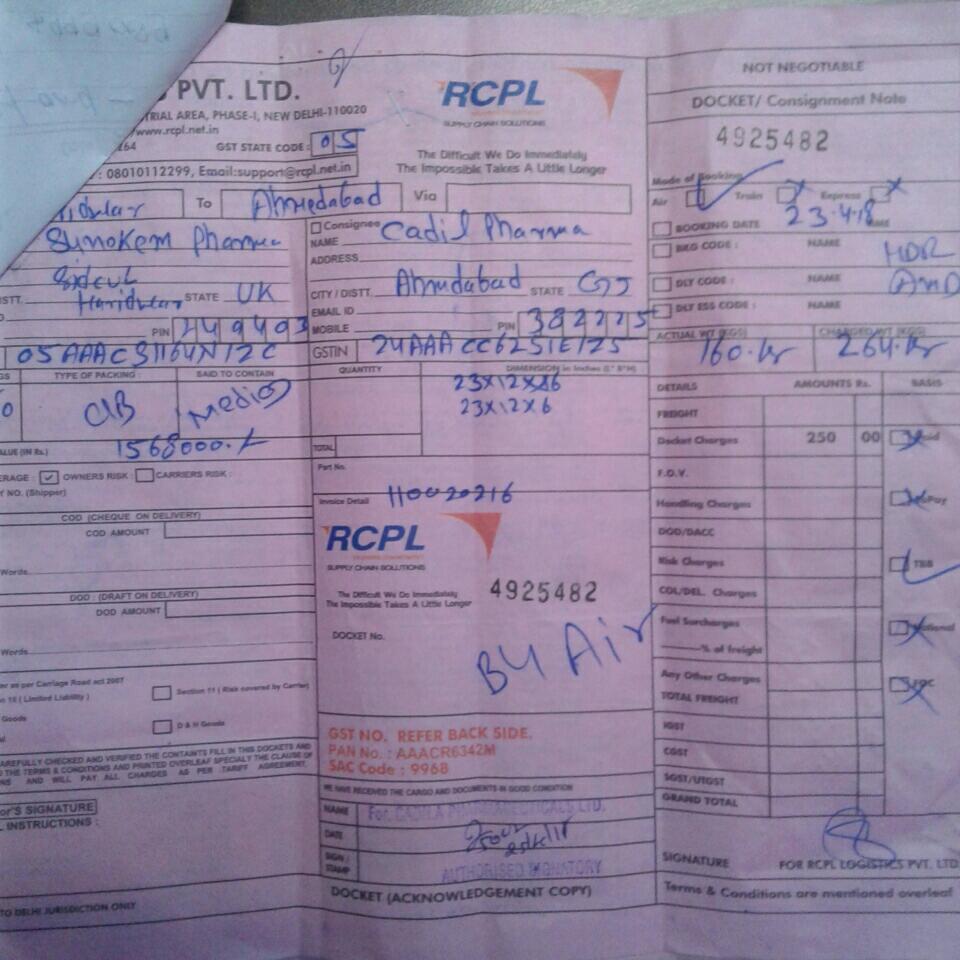 PVT. LTD.
TRIAL AREA, PHASE-I, NEW DELHI-110020
/www.rcpl.net.in
264 GST STATE CODE : 05
: 08010112299, Email:support@rcpl.net.in
To Ahmedabad Via
Pharma
Haridwar STATE UK
PIN 249403
TYPE OF PACKING: SAID TO CONTAIN
CIB
ALUE (IN Rs.) 1568000./
ERAGE : OWNERS RISK CARRIERS RISK :
Y NO. (Shipper)
COD (CHEQUE ON DELIVERY)
COD AMOUNT
Words.
DOD : (DRAFT ON DELIVERY)
DOD AMOUNT
Words.
er as per Carriage Road act 2007
n 10 ( Limited Liability ) Section 11 ( Risk covered by Carrier)
Goods D & H Goods
AREFULLY CHECKED AND VERIFIED THE CONTAINTS FILL IN THIS DOCKETS AND
THE TERMS & CONDITIONS AND PRINTED OVERLEAF SPECIALY THE CLAUSE OF
NS AND WILL PAY ALL CHARGES AS PER TARIFF AGREEMENT.
or'S SIGNATURE
L INSTRUCTIONS :
TO DELHI JURISDICTION ONLY
RCPL
SUPPLY CHAIN SOLUTIONS
The Difficult We Do Immediately
The Impossible Takes A Little Longer
Consignee
NAME Pharma
ADDRESS
CITY / DISTT. Ahmdabad STATE GJ
EMAIL ID
MOBILE PIN 382225
GSTIN
QUANTITY DIMENSION in Inches (L* B*H)
23X12X6
TOTAL
Part No.
Invoice Detail 110020216
RCPL
SUPPLY CHAIN SOLUTIONS
The Difficult We Do Immediately
The Impossible Takes A Little Longer
4925482
DOCKET No.
By Air
GST NO. REFER BACK SIDE.
PAN No. : AAACR6342M
SAC Code : 9968
WE HAVE RECEIVED THE CARGO AND DOCUMENTS IN GOOD CONDITION
NAME For, CADILA PHARMACEUTICALS LTD.
DATE
SIGN / STAMP AUTHORISED SIGNATORY
DOCKET (ACKNOWLEDGEMENT COPY)
NOT NEGOTIABLE
DOCKET/ Consignment Note
4925482
Mode of Booking
Air Train Express
BOOKING DATE 23.4.18
BKG CODE : NAME HDR
DLY CODE : NAME AMD
DLY ESS CODE : NAME
ACTUAL WT (KGS) CHARGED WT (KGS)
160.kr 264.kr
DETAILS AMOUNTS Rs. BASIS
FREIGHT
Docket Charges 250 00 Paid
F.O.V.
Handling Charges
DOD/DACC
Risk Charges TBB
COL/DEL. Charges
Fuel Surcharges
% of freight
Any Other Charges
TOTAL FREIGHT
IGST
CGST
SGST/UTGST
GRAND TOTAL
SIGNATURE FOR RCPL LOGISTICS PVT. LTD
Terms & Conditions are mentioned overleaf